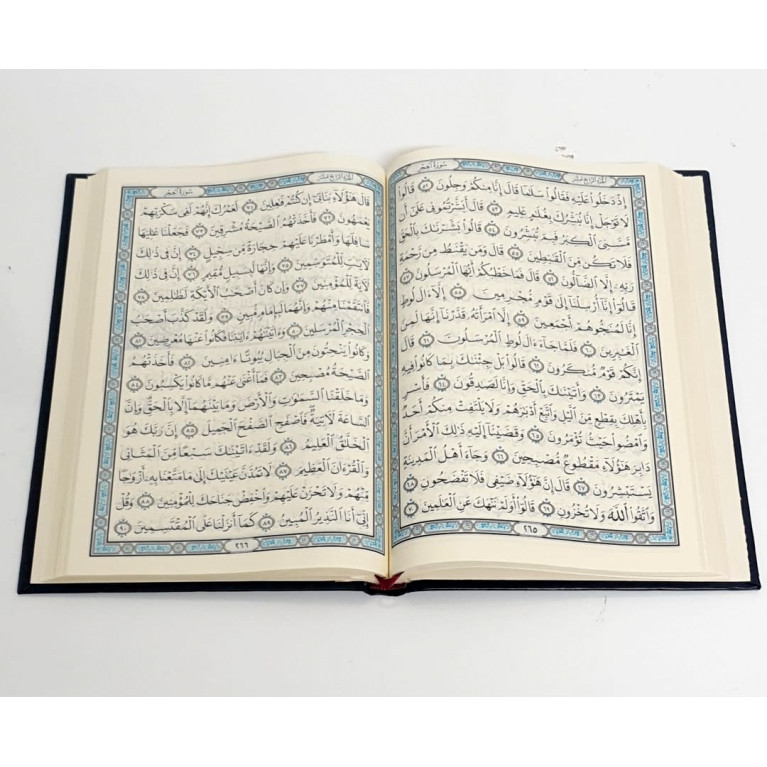 الجزء الرابع عشر سورة الحجر
إِذْ دَخَلُوا۟ عَلَيْهِ فَقَالُوا۟ سَلَٰمًا قَالَ إِنَّا مِنكُمْ وَجِلُونَ ٥٢ قَالُوا۟
لَا تَوْجَلْ إِنَّا نُبَشِّرُكَ بِغُلَٰمٍ عَلِيمٍ ٥٣ قَالَ أَبَشَّرْتُمُونِى عَلَىٰٓ أَن
مَّسَّنِىَ ٱلْكِبَرُ فَبِمَ تُبَشِّرُونَ ٥٤ قَالُوا۟ بَشَّرْنَٰكَ بِٱلْحَقِّ
فَلَا تَكُن مِّنَ ٱلْقَٰنِطِينَ ٥٥ قَالَ وَمَن يَقْنَطُ مِن رَّحْمَةِ
رَبِّهِۦٓ إِلَّا ٱلضَّآلُّونَ ٥٦ قَالَ فَمَا خَطْبُكُمْ أَيُّهَا ٱلْمُرْسَلُونَ ٥٧
قَالُوٓا۟ إِنَّآ أُرْسِلْنَآ إِلَىٰ قَوْمٍ مُّجْرِمِينَ ٥٨ إِلَّآ ءَالَ لُوطٍ
إِنَّا لَمُنَجُّوهُمْ أَجْمَعِينَ ٥٩ إِلَّا ٱمْرَأَتَهُۥ قَدَّرْنَآ إِنَّهَا لَمِنَ
ٱلْغَٰبِرِينَ ٦٠ فَلَمَّا جَآءَ ءَالَ لُوطٍ ٱلْمُرْسَلُونَ ٦١ قَالَ
إِنَّكُمْ قَوْمٌ مُّنكَرُونَ ٦٢ قَالُوا۟ بَلْ جِئْنَٰكَ بِمَا كَانُوا۟ فِيهِ
يَمْتَرُونَ ٦٣ وَأَتَيْنَٰكَ بِٱلْحَقِّ وَإِنَّا لَصَٰدِقُونَ ٦٤ فَأَسْرِ
بِأَهْلِكَ بِقِطْعٍ مِّنَ ٱلَّيْلِ وَٱتَّبِعْ أَدْبَٰرَهُمْ وَلَا يَلْتَفِتْ مِنكُمْ أَحَدٌ
وَٱمْضُوا۟ حَيْثُ تُؤْمَرُونَ ٦٥ وَقَضَيْنَآ إِلَيْهِ ذَٰلِكَ ٱلْأَمْرَ أَنَّ
دَابِرَ هَٰٓؤُلَآءِ مَقْطُوعٌ مُّصْبِحِينَ ٦٦ وَجَآءَ أَهْلُ ٱلْمَدِينَةِ
يَسْتَبْشِرُونَ ٦٧ قَالَ إِنَّ هَٰٓؤُلَآءِ ضَيْفِى فَلَا تَفْضَحُونِ ٦٨
وَٱتَّقُوا۟ ٱللَّهَ وَلَا تُخْزُونِ ٦٩ قَالُوٓا۟ أَوَلَمْ نَنْهَكَ عَنِ ٱلْعَٰلَمِينَ ٧٠
٢٦٥
سورة الحجر الجزء الرابع عشر
قَالَ هَٰٓؤُلَآءِ بَنَاتِىٓ إِن كُنتُمْ فَٰعِلِينَ ٧١ لَعَمْرُكَ إِنَّهُمْ لَفِى سَكْرَتِهِمْ
يَعْمَهُونَ ٧٢ فَأَخَذَتْهُمُ ٱلصَّيْحَةُ مُشْرِقِينَ ٧٣ فَجَعَلْنَا عَٰلِيَهَا
سَافِلَهَا وَأَمْطَرْنَا عَلَيْهِمْ حِجَارَةً مِّن سِجِّيلٍ ٧٤ إِنَّ فِى ذَٰلِكَ
لَءَايَٰتٍ لِّلْمُتَوَسِّمِينَ ٧٥ وَإِنَّهَا لَبِسَبِيلٍ مُّقِيمٍ ٧٦ إِنَّ فِى ذَٰلِكَ
لَءَايَةً لِّلْمُؤْمِنِينَ ٧٧ وَإِن كَانَ أَصْحَٰبُ ٱلْأَيْكَةِ لَظَٰلِمِينَ ٧٨
فَٱنتَقَمْنَا مِنْهُمْ وَإِنَّهُمَا لَبِإِمَامٍ مُّبِينٍ ٧٩ وَلَقَدْ كَذَّبَ أَصْحَٰبُ
ٱلْحِجْرِ ٱلْمُرْسَلِينَ ٨٠ وَءَاتَيْنَٰهُمْ ءَايَٰتِنَا فَكَانُوا۟ عَنْهَا مُعْرِضِينَ ٨١
وَكَانُوا۟ يَنْحِتُونَ مِنَ ٱلْجِبَالِ بُيُوتًا ءَامِنِينَ ٨٢ فَأَخَذَتْهُمُ
ٱلصَّيْحَةُ مُصْبِحِينَ ٨٣ فَمَآ أَغْنَىٰ عَنْهُم مَّا كَانُوا۟ يَكْسِبُونَ ٨٤
وَمَا خَلَقْنَا ٱلسَّمَٰوَٰتِ وَٱلْأَرْضَ وَمَا بَيْنَهُمَآ إِلَّا بِٱلْحَقِّ وَإِنَّ
ٱلسَّاعَةَ لَءَاتِيَةٌ فَٱصْفَحِ ٱلصَّفْحَ ٱلْجَمِيلَ ٨٥ إِنَّ رَبَّكَ هُوَ
ٱلْخَلَّٰقُ ٱلْعَلِيمُ ٨٦ وَلَقَدْ ءَاتَيْنَٰكَ سَبْعًا مِّنَ ٱلْمَثَانِى
وَٱلْقُرْءَانَ ٱلْعَظِيمَ ٨٧ لَا تَمُدَّنَّ عَيْنَيْكَ إِلَىٰ مَا مَتَّعْنَا بِهِۦٓ أَزْوَٰجًا
مِّنْهُمْ وَلَا تَحْزَنْ عَلَيْهِمْ وَٱخْفِضْ جَنَاحَكَ لِلْمُؤْمِنِينَ ٨٨ وَقُلْ
إِنِّىٓ أَنَا ٱلنَّذِيرُ ٱلْمُبِينُ ٨٩ كَمَآ أَنزَلْنَا عَلَى ٱلْمُقْتَسِمِينَ ٩٠
٢٦٦